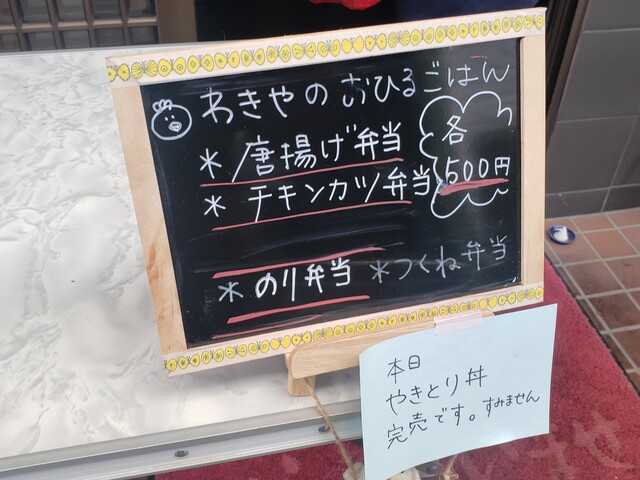 わきやの おひるごはん
＊唐揚げ弁当
＊チキンカツ弁当
各
500円
＊のり弁当 ＊つくね弁当
本日
やきとり丼
完売です。すみません